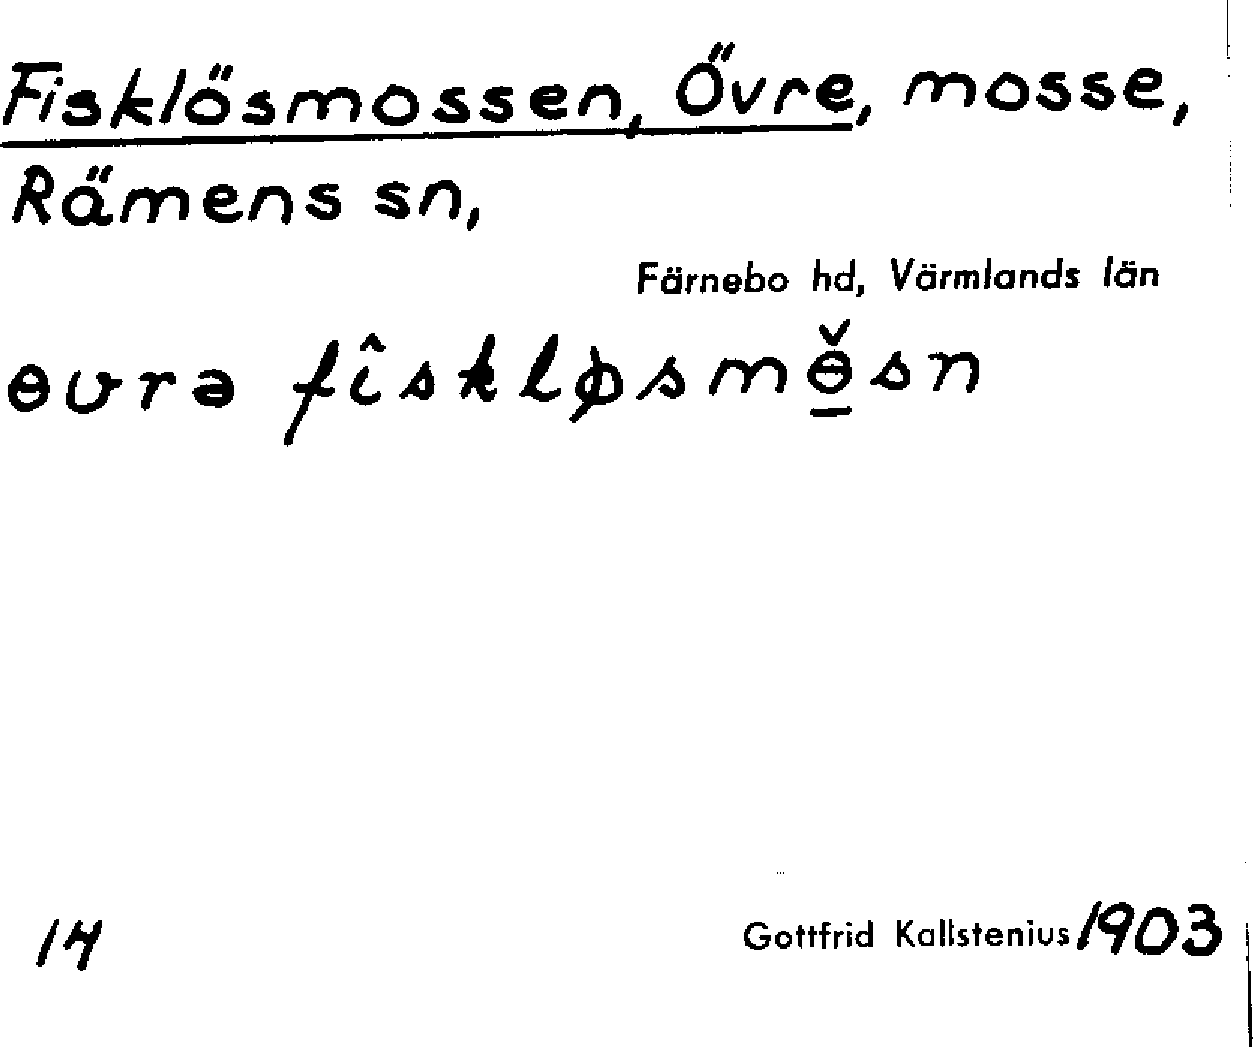 Fisklösmossen, Övre, mosse,
Rämens sn,
Färnebo hd, Värmlands län
ɵvrə fîskløsmɵ̠̌sn
14 Gottfrid Kallstenius 1903